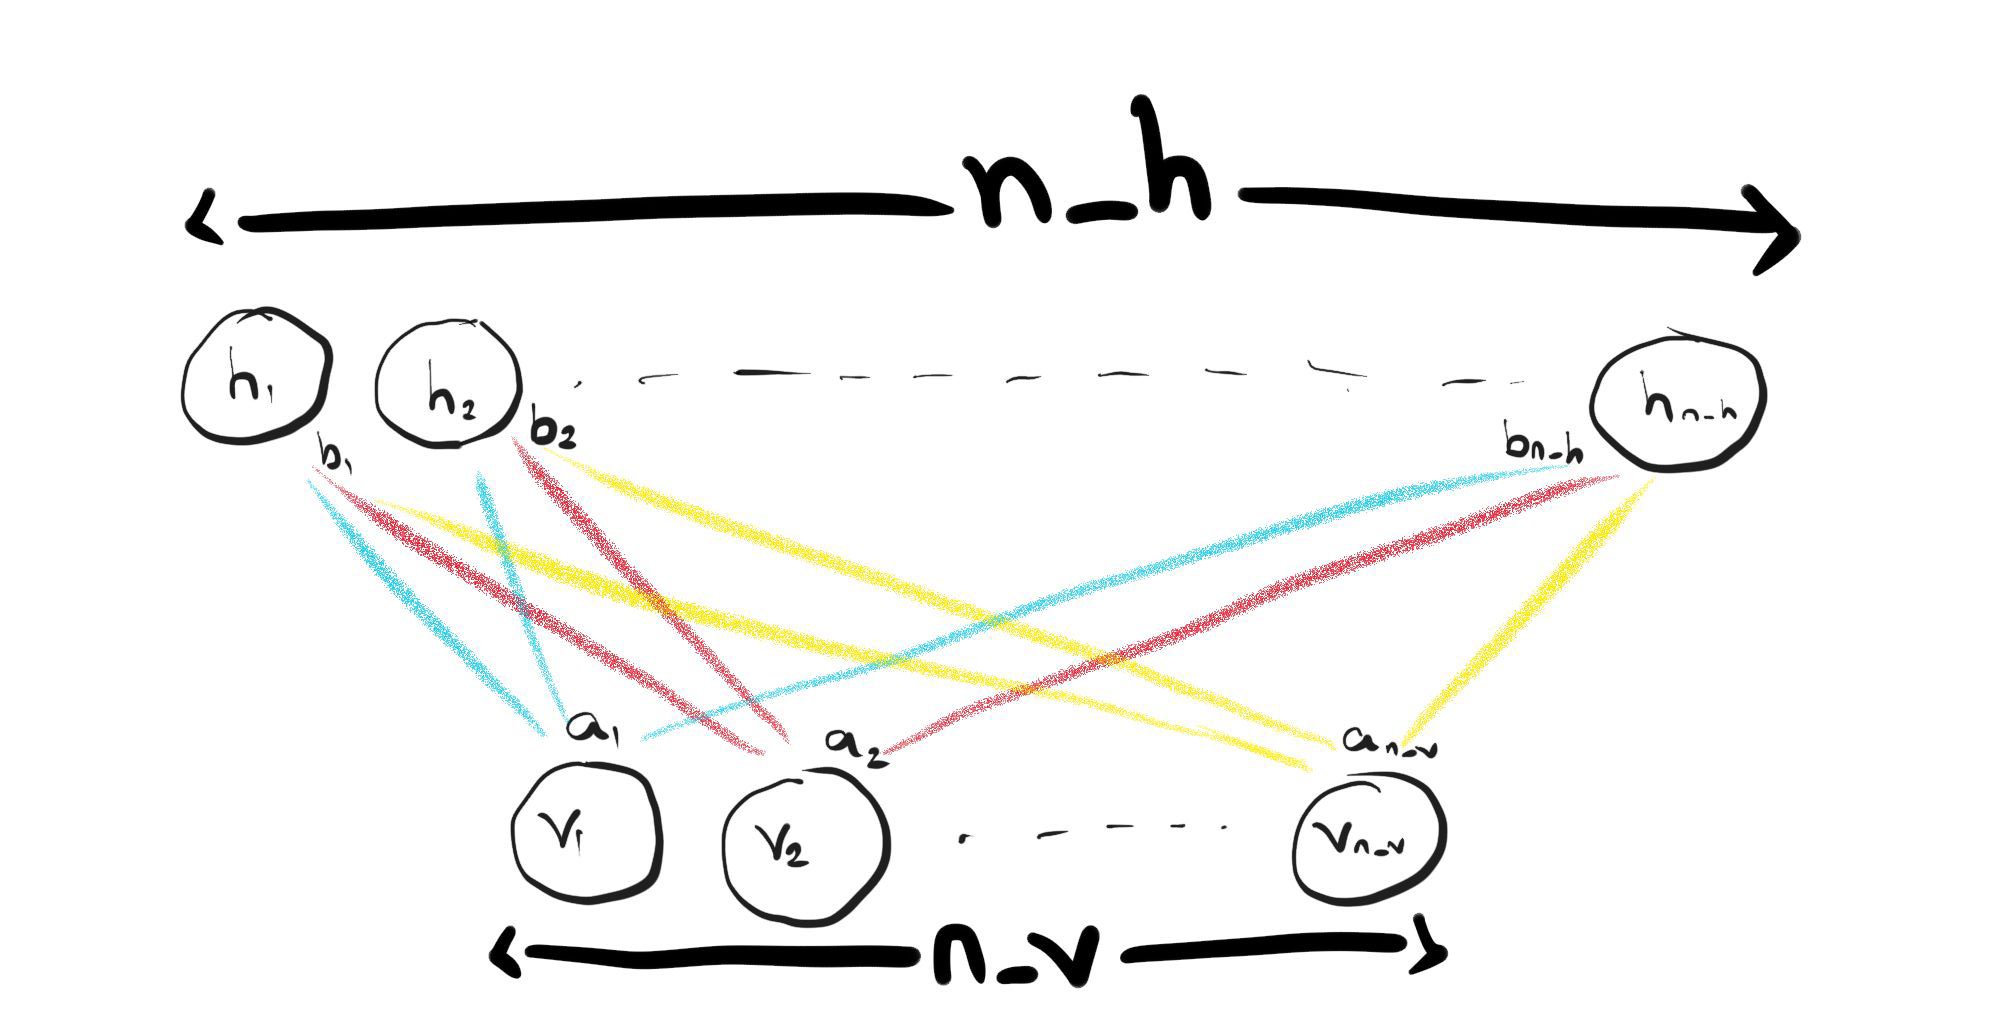 n_h
h₁ h₂ hₙ₋ₕ
b₁ b₂ bn-h
a₁ a₂ an-v
v₁ v₂ vn-v
n_v